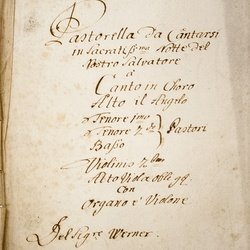 Pastorella da Cantarsi
in Sacratissma Notte del
Nostro Salvatore
a
Canto in Choro
Alto il Angelo
Tenore pmo
Tenore 2do } Pastori
Basso
Violinis
Alto Viola oblig:
con
Organo e Violone
Del Sigre Werner